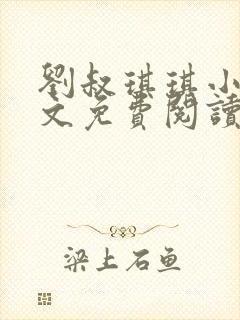 劉叔琪琪小
文免費閱讀
梁上石鱼